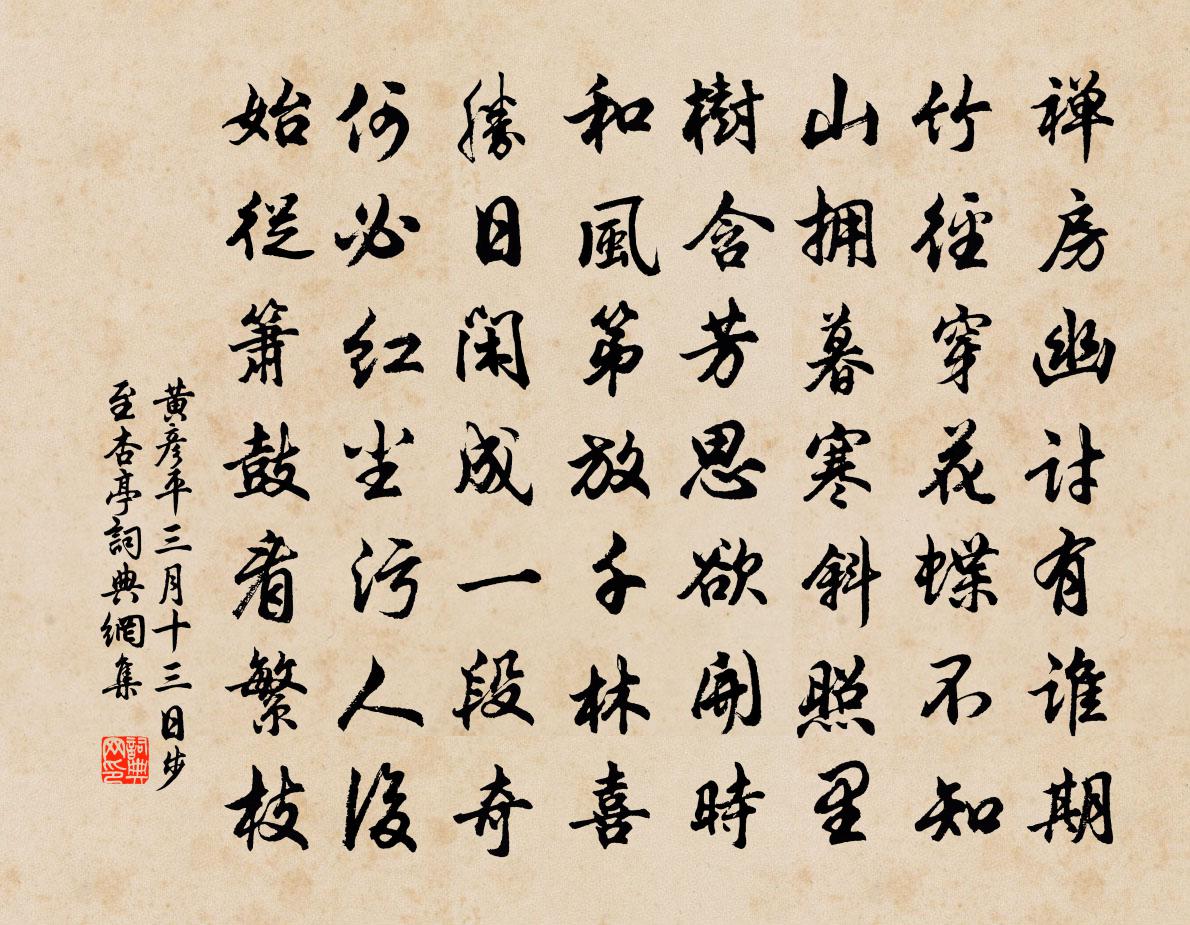 禅房幽討有谁期
竹徑穿花蝶不知
山拥暮寒斜照里
樹含芳思欲開時
和風第放千林喜
勝日閑成一段奇
何必红尘污人後
始從箫鼓看繁枝
黃彦平三月十三日步
至杏亭詞典網集
詞典
网印